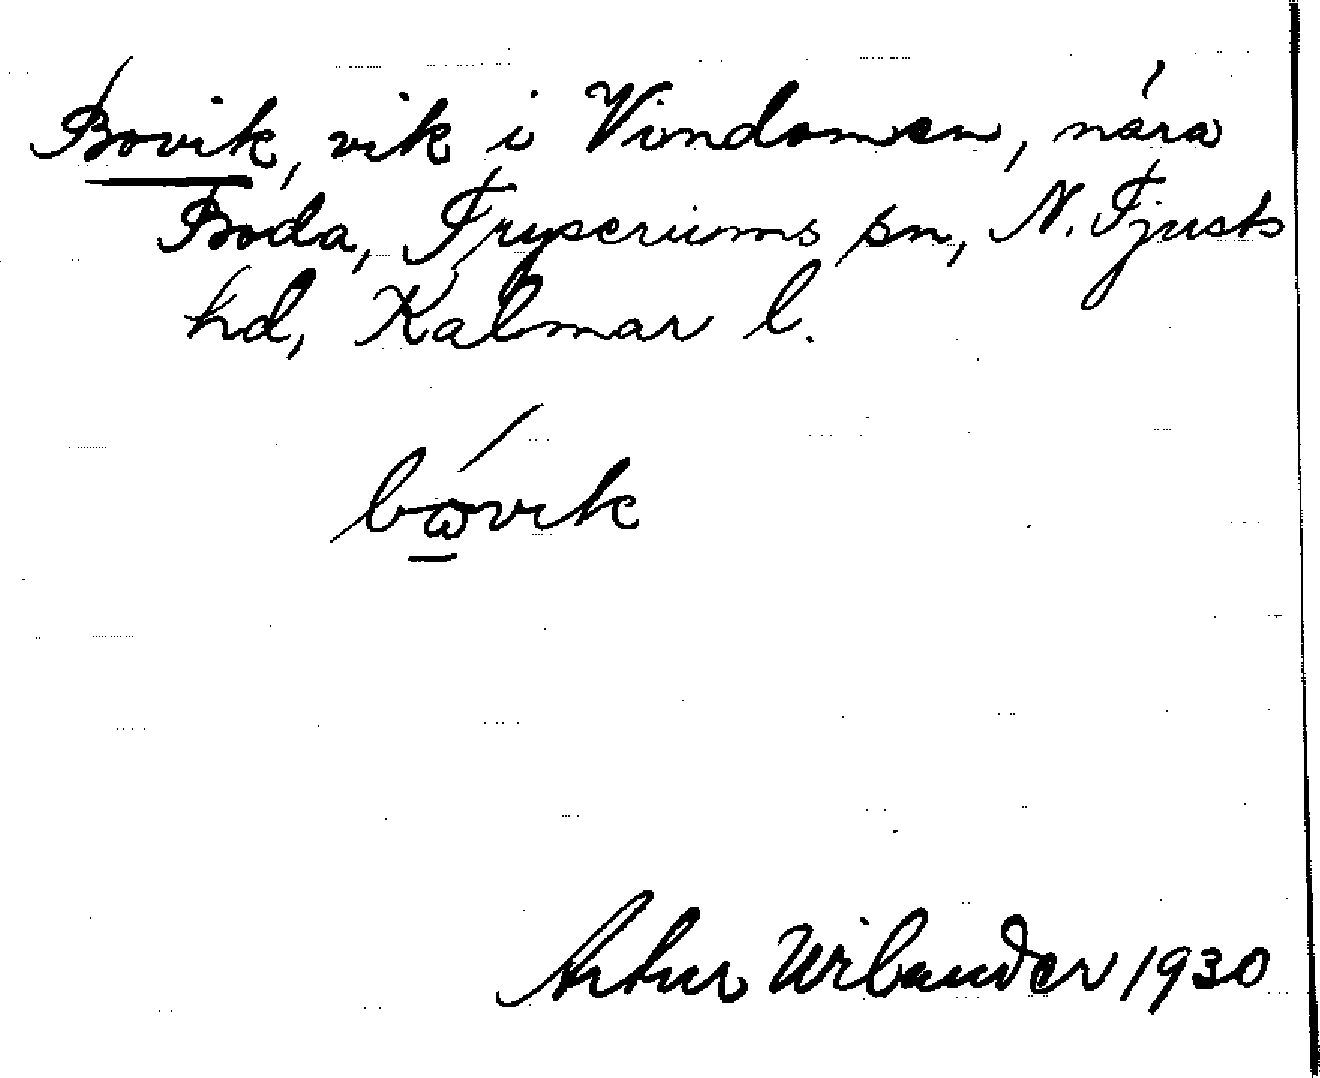 Bovik, vik i Vindommen, nära
Boda, Fryserums sn, N. Tjusts
hd, Kalmar l.
bωvik
Artur Wilander 1930